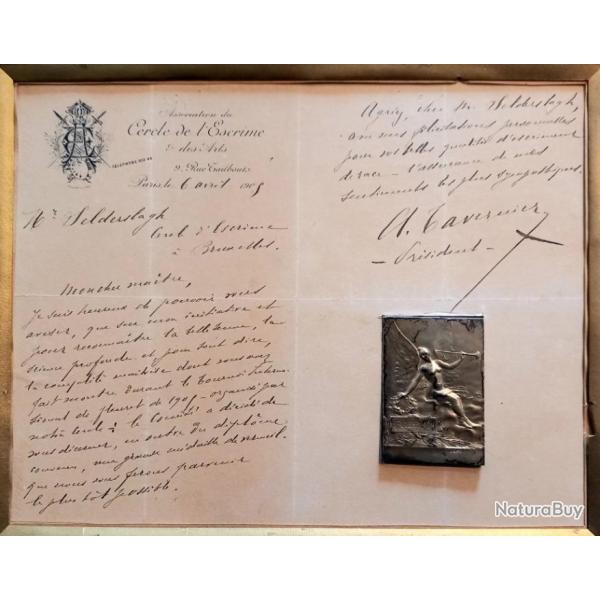 Association du
Cercle de l'Escrime
& des Arts
9, Rue Taitbout
Paris, le 6 avril 1905
Mr Selderslagh
Cercle d'Escrime
à Bruxelles.
Mon cher maître,
Je suis heureux de pouvoir vous
aviser, que sur mon initiative et
pour reconnaître la la
science profonde et, pour tout dire,
la complète maîtrise dont vous avez
fait montre durant le Tournoi Interna-
tional de fleuret de 1905 - organisé par
notre cercle, le Comité a décidé de
vous décerner, en outre du diplôme
convenu, une grande médaille de vermeil.
que nous vous ferons parvenir
le plus tôt possible.
Agréez, cher Mr Selderslagh,
avec mes félicitations personnelles
pour vos belles qualités d'escrimeur
de race - l'assurance de mes
sentiments les plus sympathiques.
A. Tavernier
- Président -
NaturaBuy